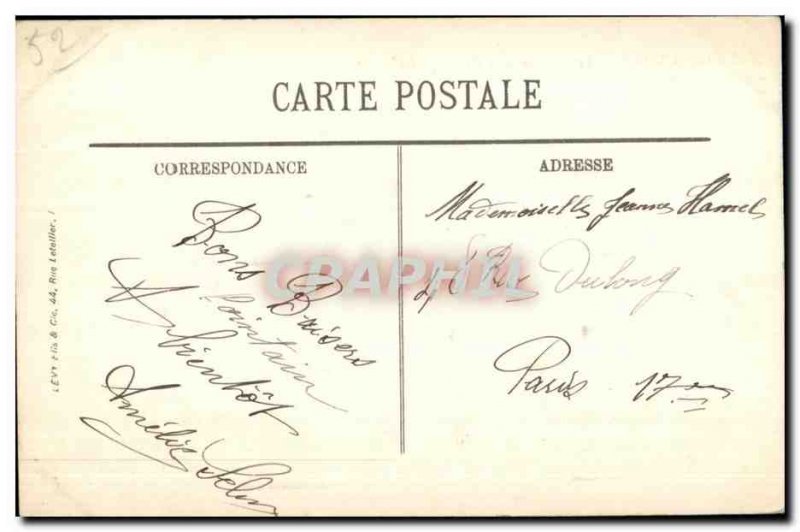 52
CARTE POSTALE
CORRESPONDANCE
ADRESSE
LEVY Fils & Cie, 44, Rue Letellier.
Bons Baisers
lointain
A bientôt
Amélie
Mademoiselle Jeanne Hamel
Rue Dulong
Paris 17
CPAPHIL